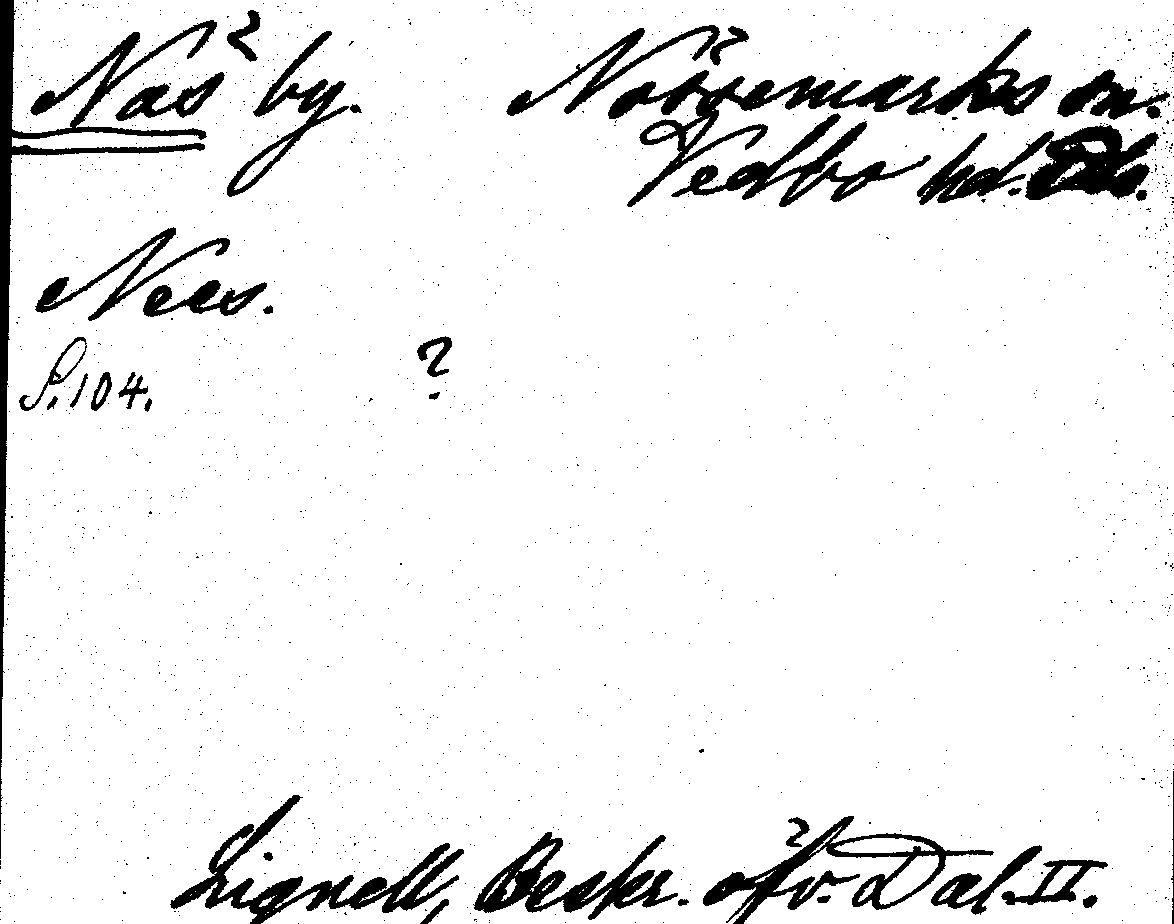 Näs by. Nössemarks sn.
Vedbo hd.
Nees.
S. 104. ?
Lignell, Beskr. öfv. Dal. II.